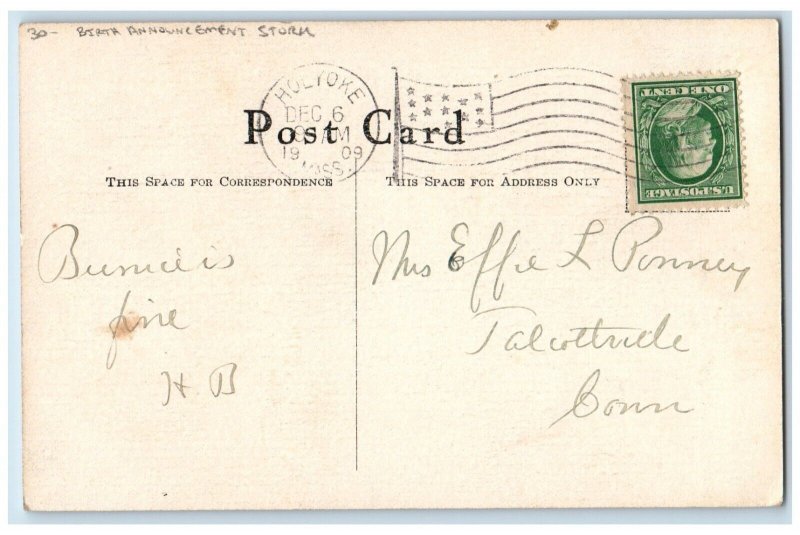 30- BIRTH ANNOUNCEMENT STORK
HOLYOKE
DEC 6
AM
1909
MASS.
Post Card
ONE CENT
U.S. POSTAGE
THIS SPACE FOR CORRESPONDENCE
THIS SPACE FOR ADDRESS ONLY
Bernice is
fine
H B
Mrs Effie L
Talcottville
Conn